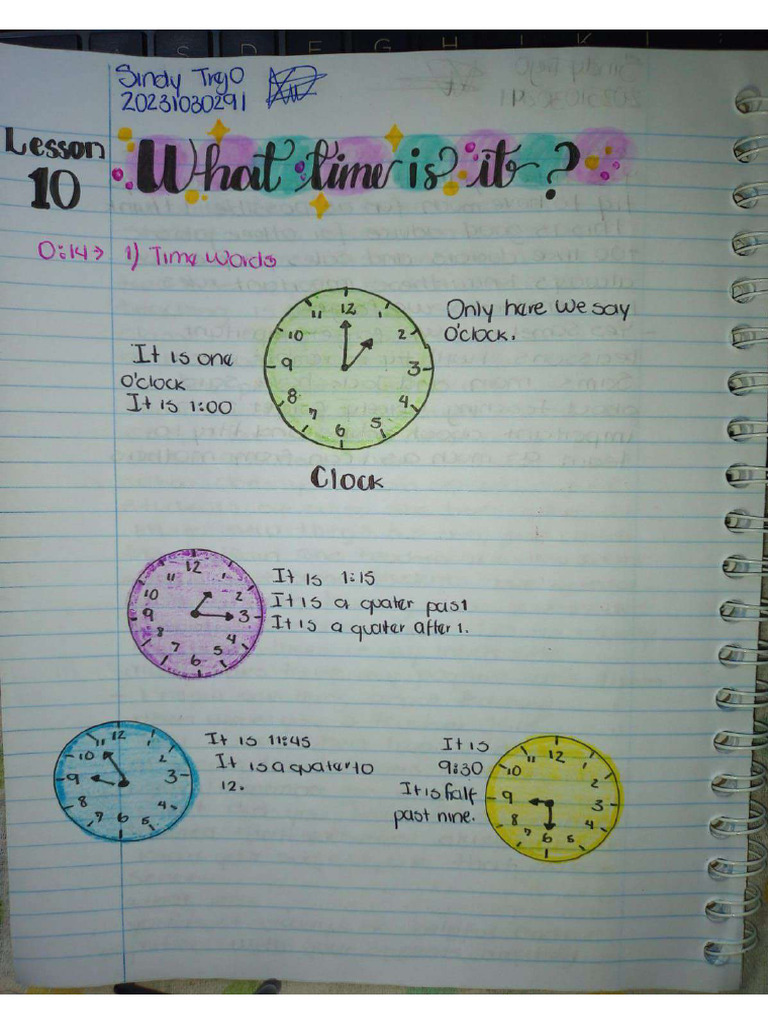 Sindy Trejo
20231030291
Lesson
10
What time is it?
0:14→ 1) Time Words
12
1
2
3
4
5
6
7
8
9
10
11
Only have we say
o'clock.
It is one
o'clock
It is 1:00
Clock
12
1
2
3
4
5
6
7
8
9
10
11
It is 1:15
It is a quater past
It is a quater after 1.
12
1
2
3
4
5
6
7
8
9
10
11
It is 11:45
It is a quater to
12.
It is
9:30
It is half
past nine.
12
1
2
3
4
5
6
7
8
9
10
11